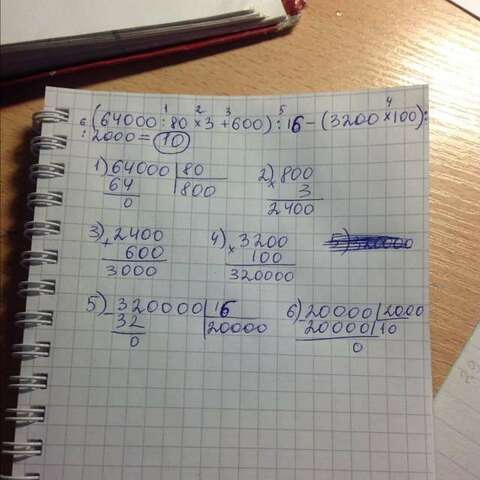 1 2 3 5 4
6 (64000 : 80 × 3 + 600) : 16 - (3200 × 100) :
: 2000 = 10
1) 64000 | 80 2) × 800
64 | 800 3
0 2400
3) + 2400 4) × 3200
600 100
3000 320000
5) - 320000 | 16 6) - 20000 | 2000
32 | 20000 20000 | 10
0 0